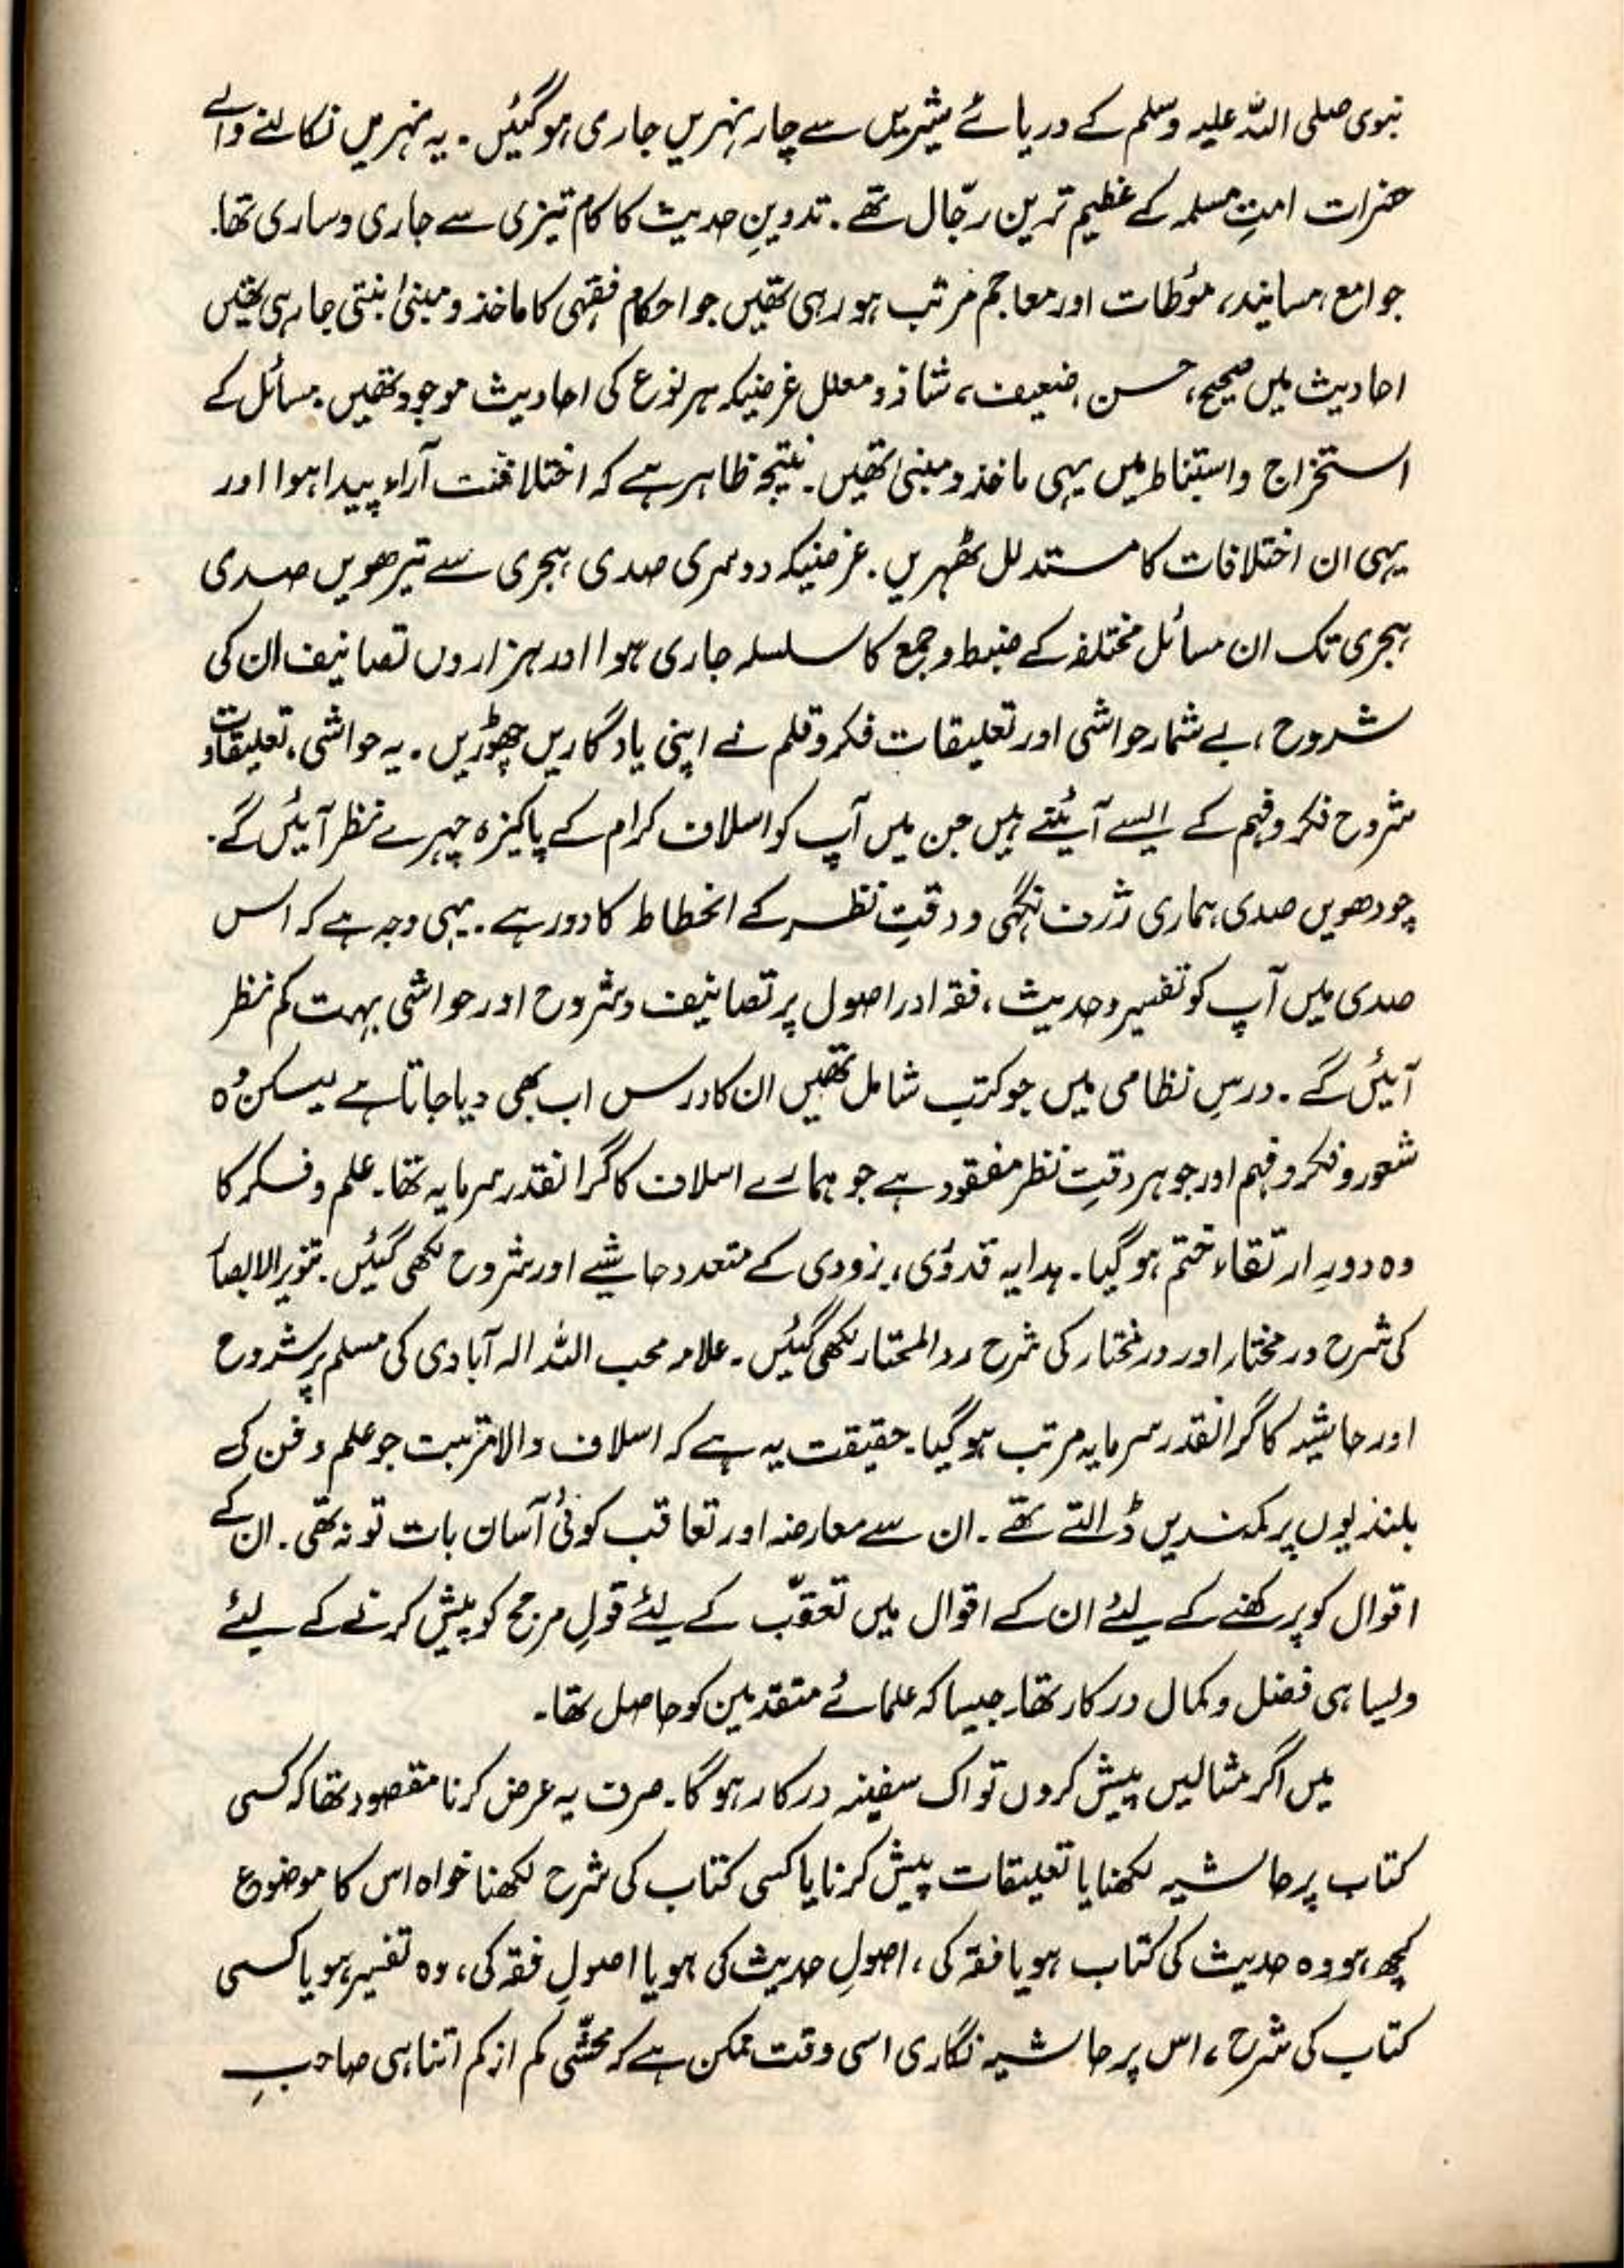 نبوی صلی اللہ علیہ وسلم کے دریائے شیریں سے چار نہریں جاری ہوگئیں۔ یہ نہریں نکالنے والے
حضرات امتِ مسلمہ کے عظیم ترین رجّال تھے۔ تدوینِ حدیث کا کام تیزی سے جاری و ساری تھا۔
جوامع، مسانید، مؤطات اور معاجم مرتب ہو رہی تھیں جو احکام فقہی کا ماخذ و مبنیٰ بنتی جا رہی تھیں
احادیث میں صحیح، حسن، ضعیف، شاذ و معلل غرضیکہ ہر نوع کی احادیث موجود تھیں۔ مسائل کے
استخراج و استنباط میں یہی ماخذ و مبنیٰ تھیں۔ نتیجہ ظاہر ہے کہ اختلافت آراء پیدا ہوا اور
یہی ان اختلافات کا مستدلل ٹھہریں۔ غرضیکہ دوسری صدی ہجری سے تیرھویں صدی
ہجری تک ان مسائل مختلفہ کے ضبط و جمع کا سلسلہ جاری ہوا اور ہزاروں تصانیف ان کی
شروح، بے شمار حواشی اور تعلیقات فکر و قلم نے اپنی یادگاریں چھوڑیں۔ یہ حواشی، تعلیقات و
شروح فکر و فہم کے ایسے آئینے ہیں جن میں آپ کو اسلاف کرام کے پاکیزہ چہرے نظر آئیں گے۔
چودھویں صدی ہماری ژرف نگہی و دقتِ نظر کے انحطاط کا دور ہے۔ یہی وجہ ہے کہ اس
صدی میں آپ کو تفسیر و حدیث، فقہ اور اصول پر تصانیف و شروح اور حواشی بہت کم نظر
آئیں گے۔ درسِ نظامی میں جو کتب شامل تھیں ان کا درس اب بھی دیا جاتا ہے لیکن وُہ
شعور و فکر و فہم اور جوہر دقتِ نظر مفقود ہے جو ہمارے اسلاف کا گرانقدر سرمایہ تھا۔ علم و فکر کا
وہ دورِ ارتقاء ختم ہوگیا۔ ہدایہ قدوری، بزودی کے متعدد حاشیے اور شروح لکھی گئیں۔ تنویر الابصار
کی شرح در مختار اور در مختار کی شرح رد المحتار لکھی گئیں۔ علامہ محب اللہ الہ آبادی کی مسلم پر شروح
اور حاشیہ کا گرانقدر سرمایہ مرتب ہوگیا۔ حقیقت یہ ہے کہ اسلاف والا مرتبت جو علم و فن کی
بلندیوں پر کمندیں ڈالتے تھے۔ ان سے معارضہ اور تعاقب کوئی آسان بات تو نہ تھی۔ ان کے
اقوال کو پرکھنے کے لیئے ان کے اقوال میں تعقّب کے لیئے قولِ مرجح کو پیش کرنے کے لیئے
ویسا ہی فضل و کمال درکار تھا۔ جیسا کہ علمائے متقدمین کو حاصل تھا۔
میں اگر مثالیں پیش کروں تو اک سفینہ درکار ہوگا۔ صرف یہ عرض کرنا مقصود تھا کہ کسی
کتاب پر حاشیہ لکھنا یا تعلیقات پیش کرنا یا کسی کتاب کی شرح لکھنا خواہ اس کا موضوع
کچھ ہو وہ حدیث کی کتاب ہو یا فقہ کی، اصولِ حدیث کی ہو یا اصولِ فقہ کی، وہ تفسیر ہو یا کسی
کتاب کی شرح، اس پر حاشیہ نگاری اسی وقت ممکن ہے کہ محشّی کم از کم اتنا ہی صاحبِ